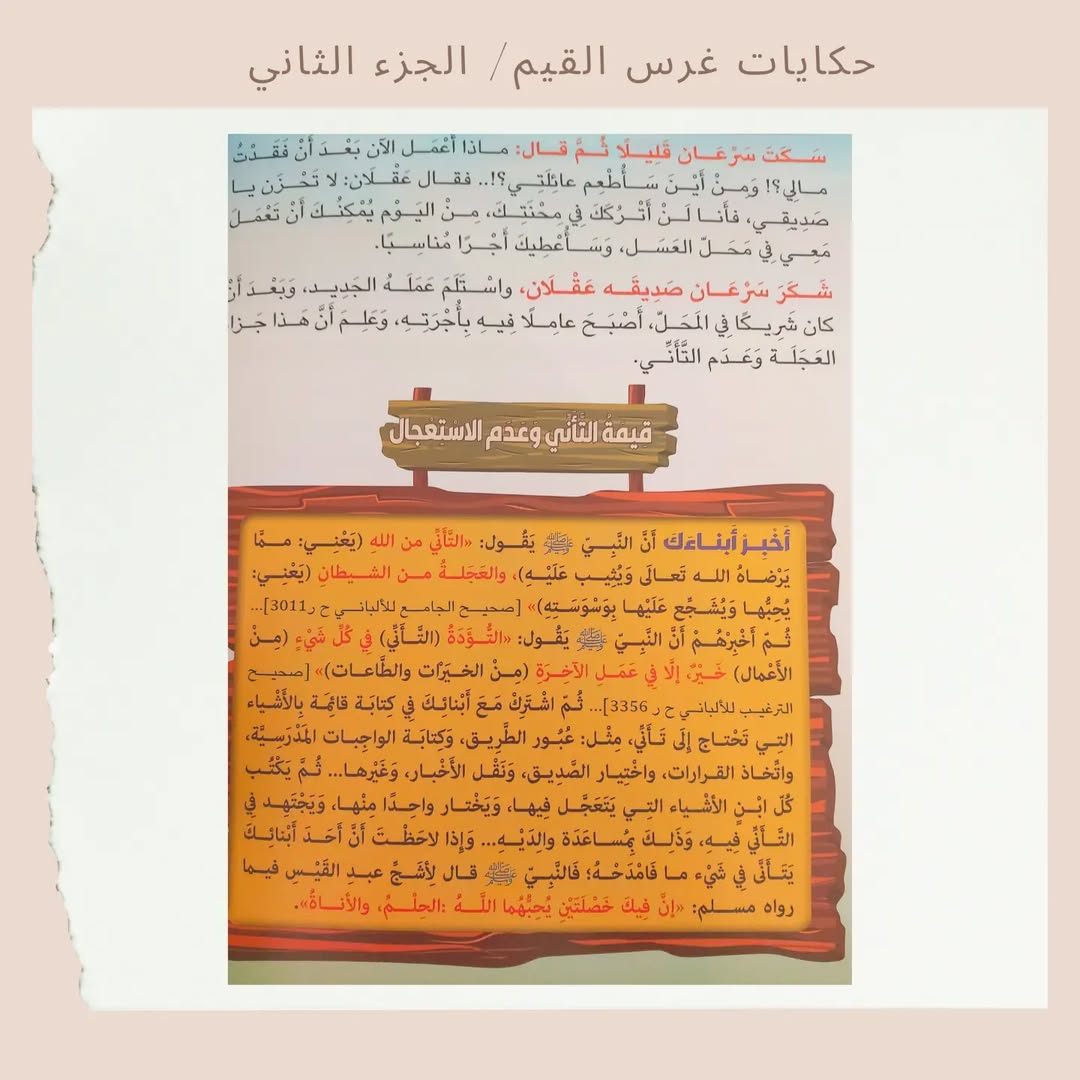 حكايات غرس القيم/ الجزء الثاني
سَـكَتَ سَرْعَـان قَلِيـلًا ثُـمَّ قـال: مـاذا أَعْمَـل الآن بَعْـدَ أَنْ فَقَـدْتُ
مـالِي؟! وَمِـنْ أَيْـنَ سَـأُطْعِم عائِلَتِـي؟!.. فقـال عَقْـلَان: لا تَحْـزَن يـا
صَدِيقـي، فأَنـا لَـنْ أَتْـرُكَكَ فِي مِحْنَتِـكَ، مِـنْ اليَـوْم يُمْكِنُـكَ أَنْ تَعْمَـلَ
مَعِـي فِي مَحَـلِّ العَسَـل، وَسَـأُعْطِيكَ أَجْـرًا مُناسِـبًا.
شَـكَرَ سَرْعَـان صَدِيقَـه عَقْـلَان، واسْـتَلَمَ عَمَلَـهُ الجَدِيـد، وَبَعْـدَ أَنْ
كان شَرِيـكًا فِي المَحَـلّ، أَصْبَـحَ عامِـلًا فيـهِ بِأُجْرَتِـهِ، وَعَلِـمَ أَنَّ هَـذا جَـزا
العَجَلَـة وَعَـدَم التَّأَنِّـي.
قيمَةُ التَّأَنِّي وَعَدَم الاسْتعْجال
أَخْبِرْ أَبناءَكَ أَنَّ النَّبِيّ ﷺ يَقُـول: «التَّأَنِّي من اللهِ (يَعْنِـي: ممَّـا
يَرْضـاهُ اللـه تَعـالَى وَيُثِيـب عَلَيْـهِ)، والعَجَلـةُ مـن الشـيطانِ (يَعْنِـي:
يُحِبُّهـا وَيُشَـجِّع عَلَيْهـا بِوَسْوَسَـتِهِ)» [صحيـح الجامـع للألبانـي ح ر3011]...
ثُـمّ أَخْبِرْهُـمْ أَنَّ النَّبِـيّ ﷺ يَقُـول: «التُّـؤَدَةُ (التَّأَنِّي) فِي كُلِّ شَيْءٍ (مِـنْ
الأَعْمال) خَـيْرٌ، إلَّا فِي عَمَـلِ الآخِـرَةِ (مِـنْ الخيَرْات والطَّاعـات)» [صحيـح
الترغيـب للألبانـي ح ر 3356]... ثُـمّ اشْتَرِكْ مَـعَ أَبْنائِـكَ فِي كِتابَـة قائِمَـة بِالأَشْياء
التِـي تَحْتـاج إِلَى تَـأَنِّي، مِثْـل: عُبُـور الطَّرِيـق، وَكِتابَـة الواجِبـات المَدْرَسِـيَّة،
واتِّخـاذ القـرارات، واخْتِيـار الصَّدِيـق، وَنَقْـل الأَخْبـار، وَغَيْرِهـا... ثُـمَّ يَكْتُـب
كُلّ ابْـنٍ الأَشْـياء التِـي يَتَعَجَّـل فِيهـا، وَيَخْتـار واحِـدًا مِنْهـا، وَيَجْتَهِـد فِي
التَّـأَنِّي فِيـهِ، وَذَلِـكَ بِمُسـاعَدَة والِدَيْـهِ... وَإِذا لاحَظْـتَ أَنَّ أَحَـدَ أَبْنائِـكَ
يَتَـأَنَّى فِي شَيْء مـا فَامْدَحْـهُ؛ فَالنَّبِـيّ ﷺ قـال لِأَشَـجِّ عبـدِ القَيْـسِ فيمـا
رواه مسـلم: «إنَّ فِيكَ خَصْلَتَيْنِ يُحِبُّهُما اللَّـهُ :الحِلْـمُ، والأناةُ».